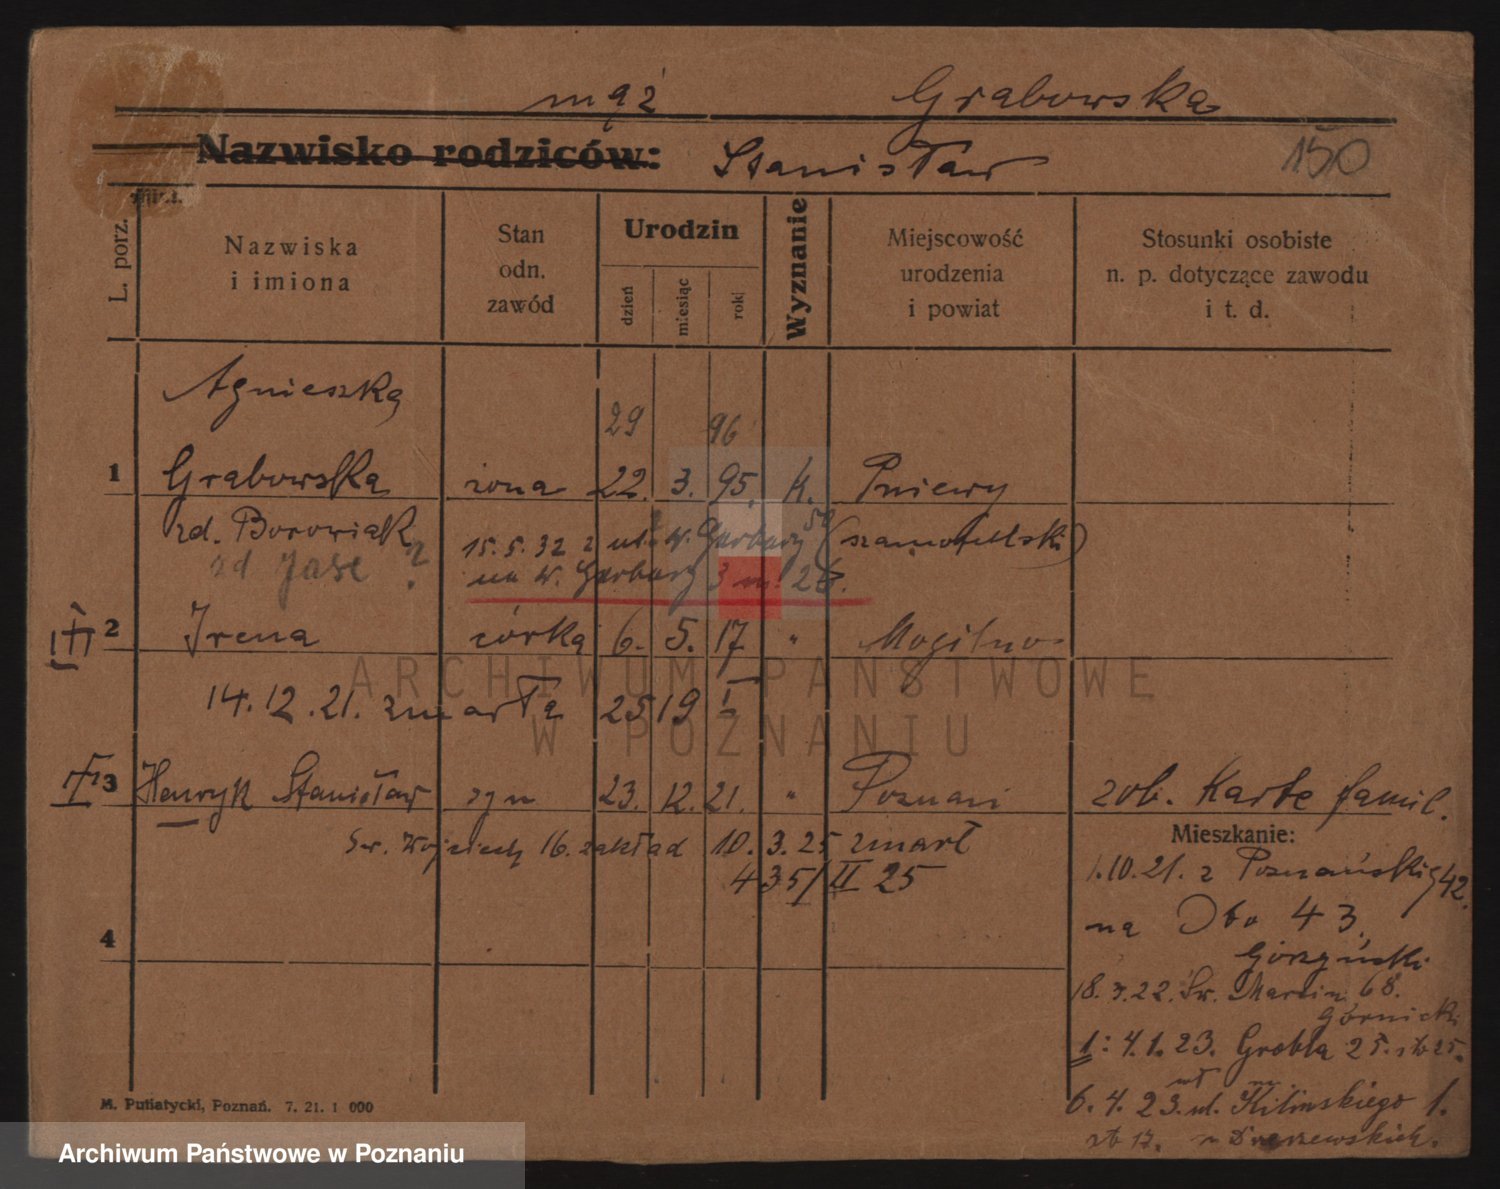 mąż Grabowska
Nazwisko rodziców: Stanisław 150
L. porz.
Nazwiska i imiona
Stan odn. zawód
Urodzin
dzień miesiąc rok
Wyznanie
Miejscowość urodzenia i powiat
Stosunki osobiste n. p. dotyczące zawodu i t. d.
Agnieszka
29 96
1 Grabowska żona 22. 3. 95. k. Pniewy
zd. Borowiak (szamotulski)
zd Jase ?
15.5.32 z ul. W. Garbary 50
na W. Garbary 3 m. 26.
2 Irena córka 6. 5. 17 " Mogilno
14.12.21. zmarła 2519 I
3 Henryk Stanisław syn 23. 12. 21. " Poznań zob. Karte famil.
Św. Wojciech 16. zakład 10.3.25 zmarł
435/II 25
4
Mieszkanie:
1.10.21. z Poznańskiej 42.
na 43.
Górzyński
18.3.22. Św. Marcin 68.
Górnicki
1: 4.1.23. Grobla 25.
6.4.23. ul. Kilińskiego 1.
M. Putiatycki, Poznań. 7. 21. 1 000
ARCHIWUM PAŃSTWOWE
W POZNANIU
Archiwum Państwowe w Poznaniu